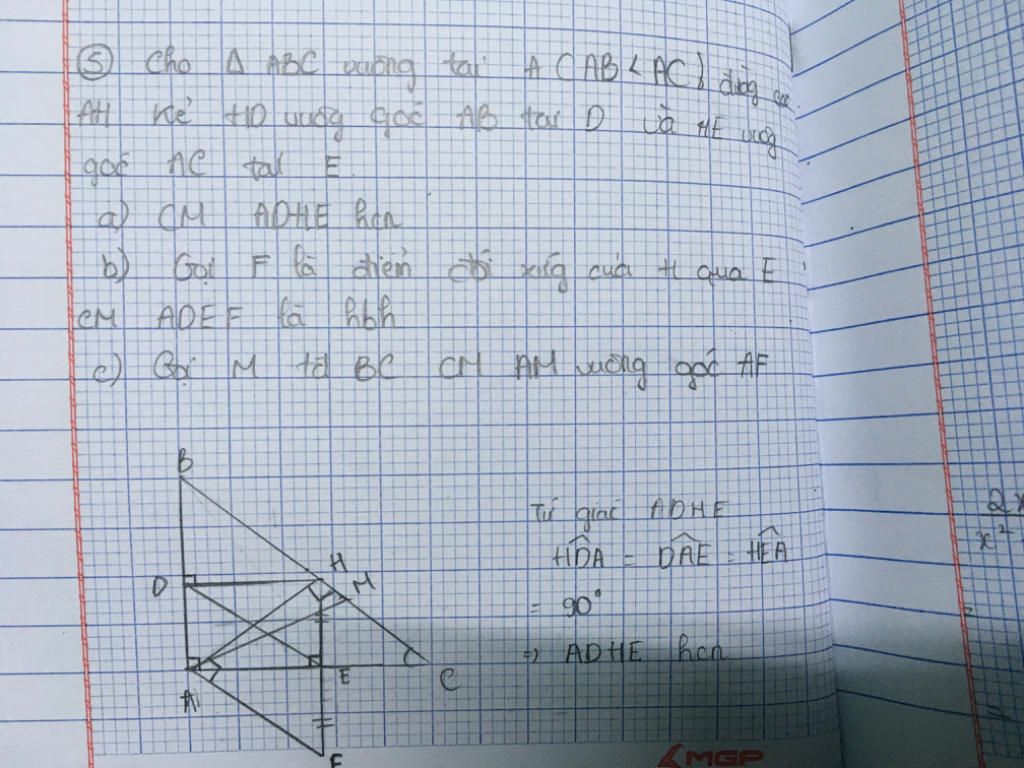 ⑤ Cho Δ ABC vuông tại A (AB < AC), đường cao
AH Kẻ HD vuông góc AB tại D và HE vuông
góc AC tại E.
a) CM ADHE hcn
b) Gọi F là điểm đối xứng của H qua E
CM ADEF là hbh
c) Gọi M tđ BC CM AM vuông góc AF
B
D
H
M
A
E
C
F
Tứ giác ADHE
HDA = DAE = HEA
= 90°
=> ADHE hcn
MGP